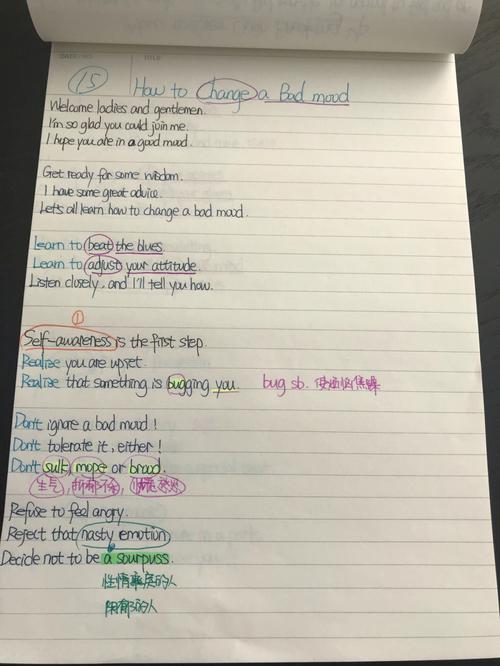 DATE/NO. TITLE
15 How to Change a Bad mood
Welcome ladies and gentlemen.
I'm so glad you could join me.
I hope you are in a good mood.
Get ready for some wisdom.
I have some great advice.
Let's all learn how to change a bad mood.
Learn to beat the blues.
Learn to adjust your attitude.
Listen closely, and I'll tell you how.
①
Self-awareness is the first step.
Realize you are upset.
Realize that something is bugging you. bug sb. 使烦恼焦躁
Don't ignore a bad mood!
Don't tolerate it, either!
Don't sulk, mope or brood.
生气, 抑郁
Refuse to feel angry.
Reject that nasty emotion.
Decide not to be a sourpuss.
性情乖戾的人
阴郁的人